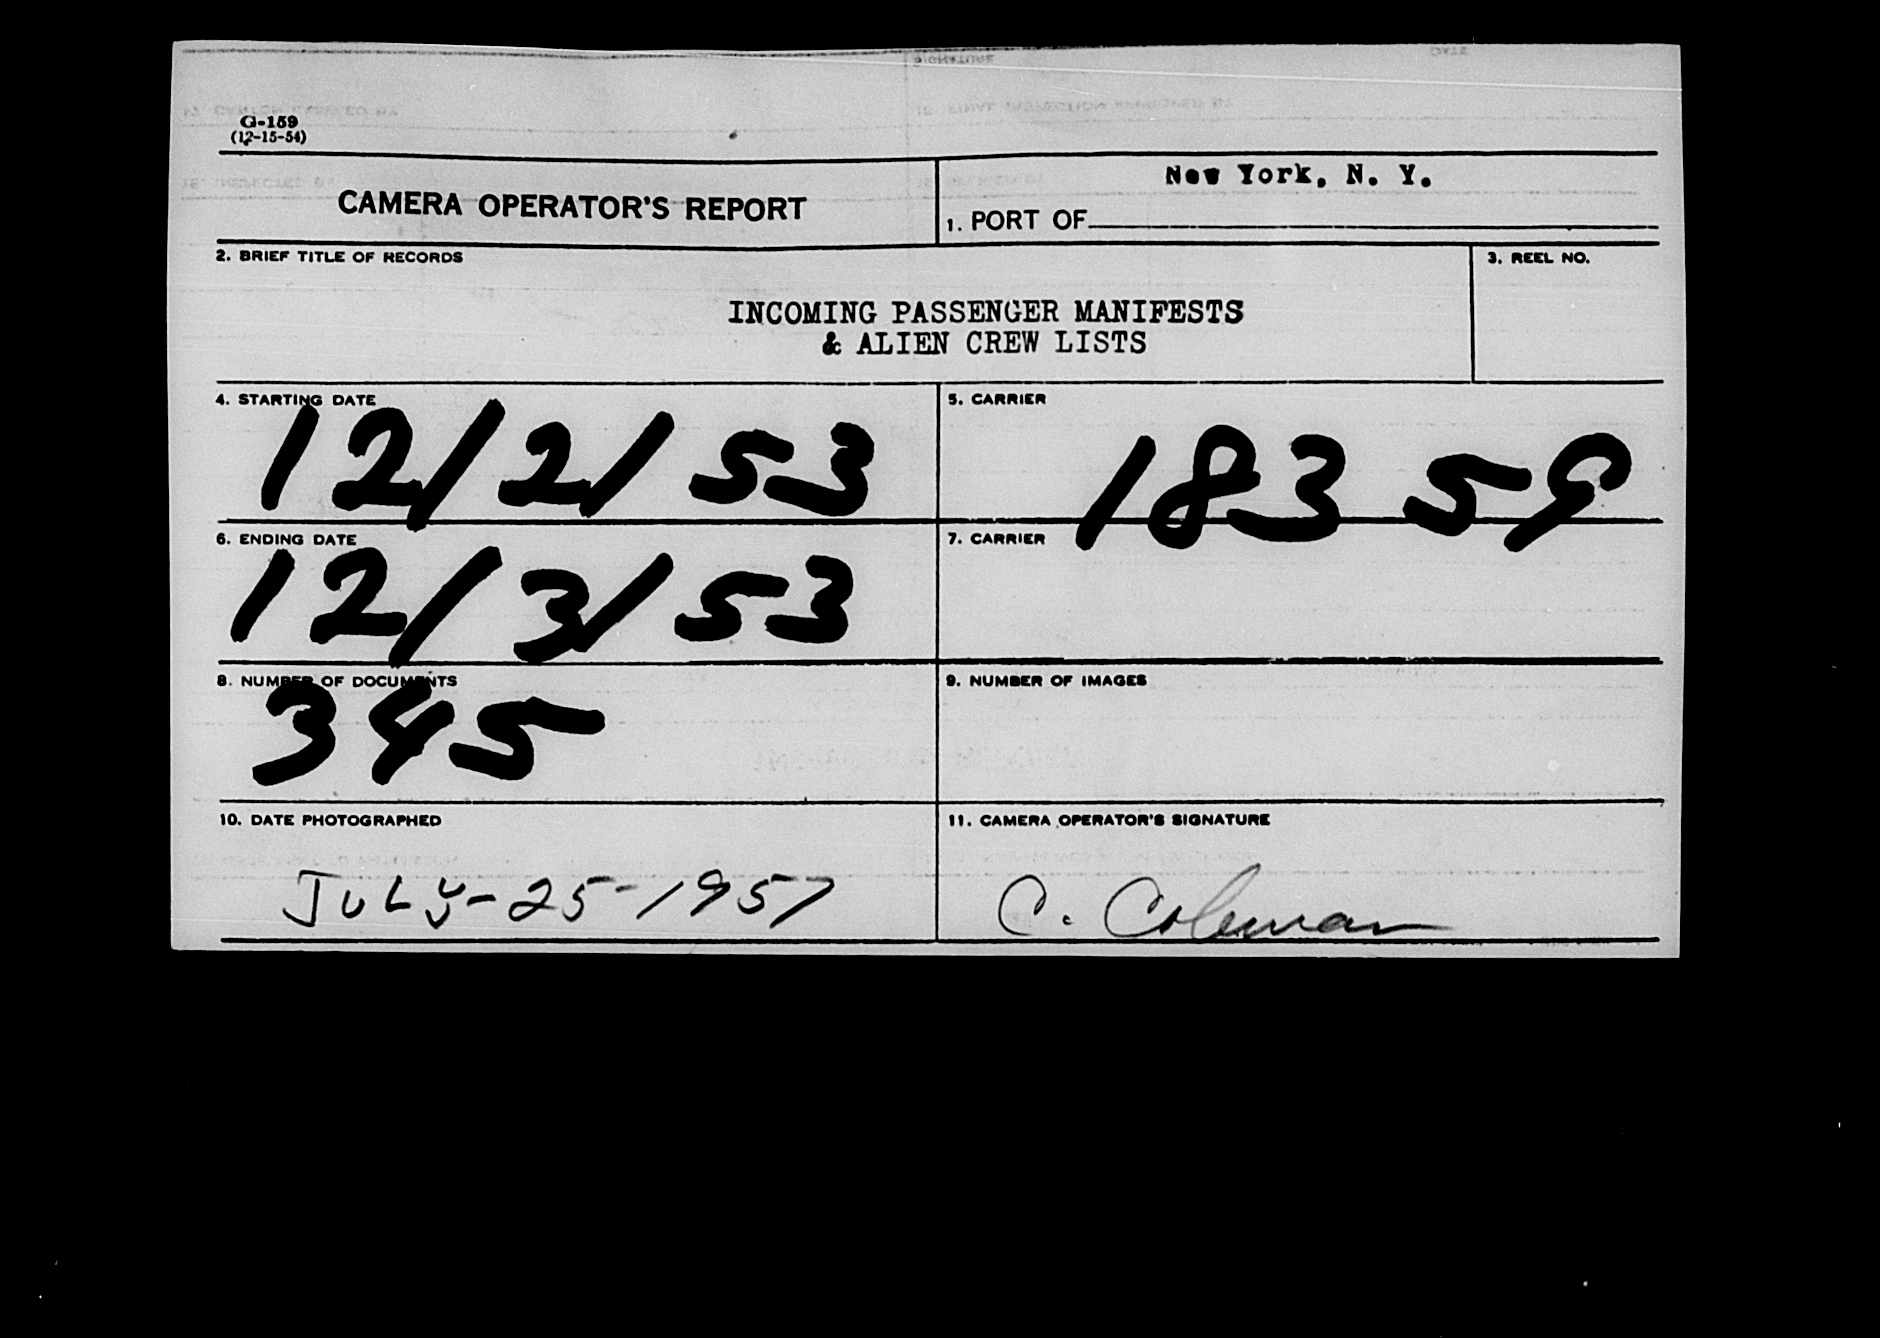 G-159
(12-15-54)
CAMERA OPERATOR'S REPORT
New York, N. Y.
1. PORT OF
2. BRIEF TITLE OF RECORDS
3. REEL NO.
INCOMING PASSENGER MANIFESTS
& ALIEN CREW LISTS
4. STARTING DATE
12/2/53
5. CARRIER
18359
6. ENDING DATE
12/3/53
7. CARRIER
8. NUMBER OF DOCUMENTS
345
9. NUMBER OF IMAGES
10. DATE PHOTOGRAPHED
JULY-25-1957
11. CAMERA OPERATOR'S SIGNATURE
C. Coleman